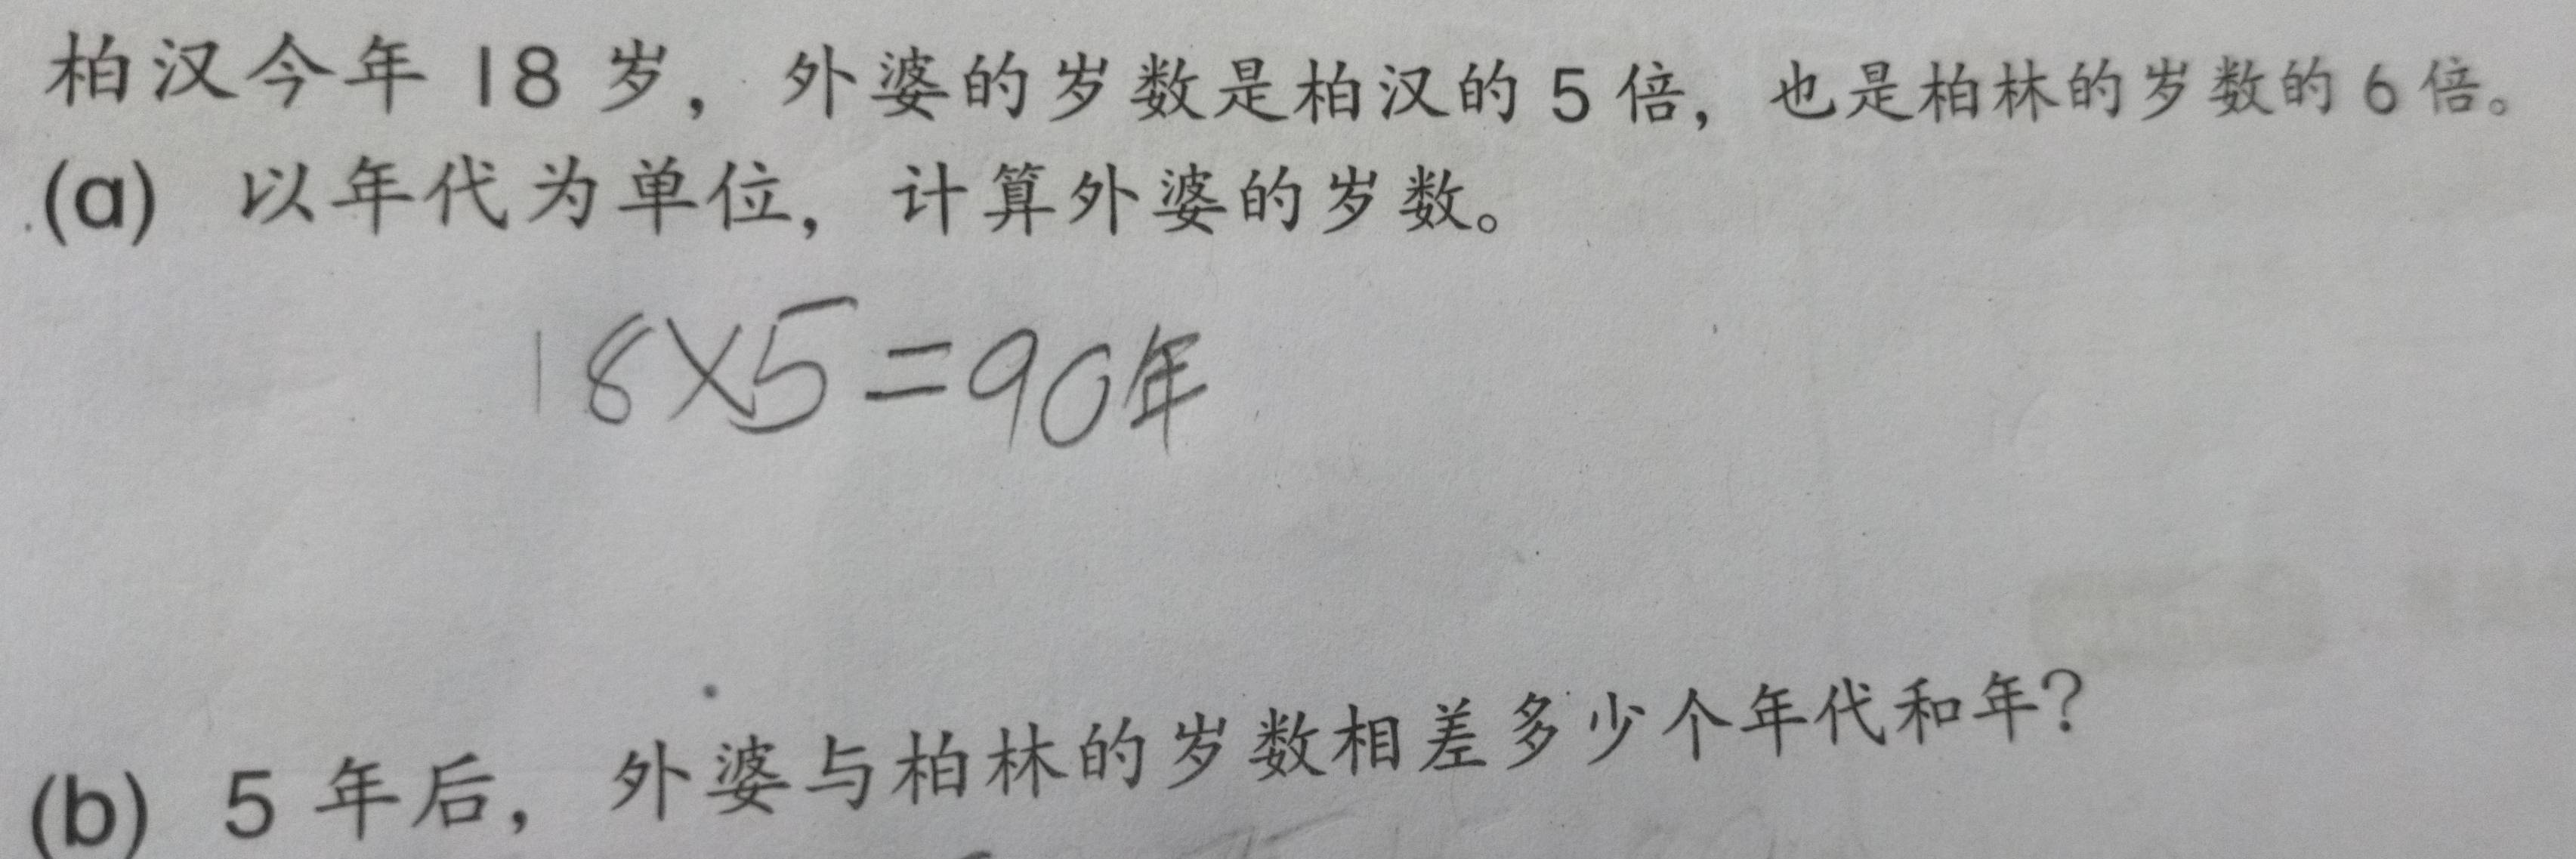 柏汉今年 18 岁，外婆的岁数是柏汉的 5 倍，也是柏林的岁数的 6 倍。
(a) 以年代为单位，计算外婆的岁数。
18×5=90年
(b) 5 年后，外婆与柏林的岁数相差多少个年代和年？